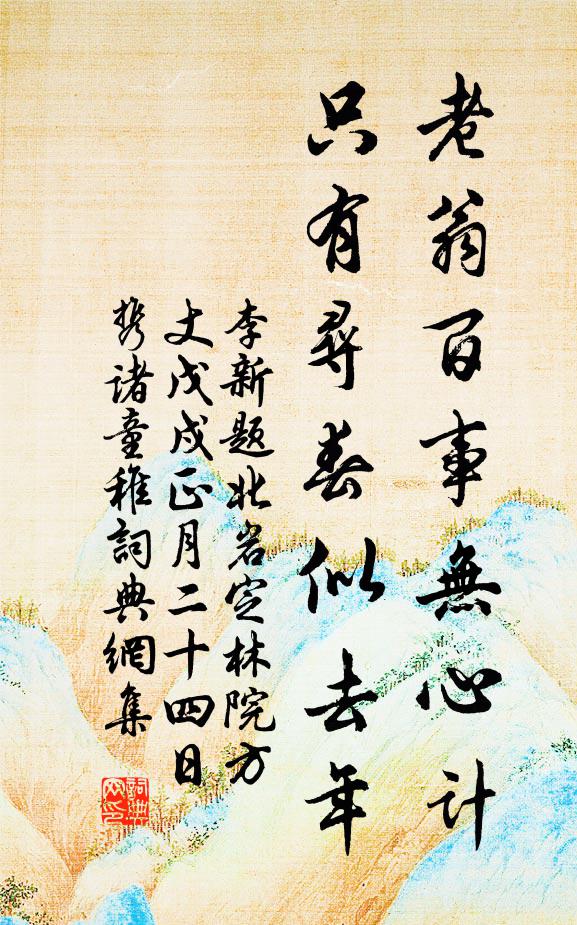 老翁百事無心計
只有尋春似去年
李新題北岩定林院方
丈戊戌正月二十四日
携諸童稚詞典網集
詞典網印